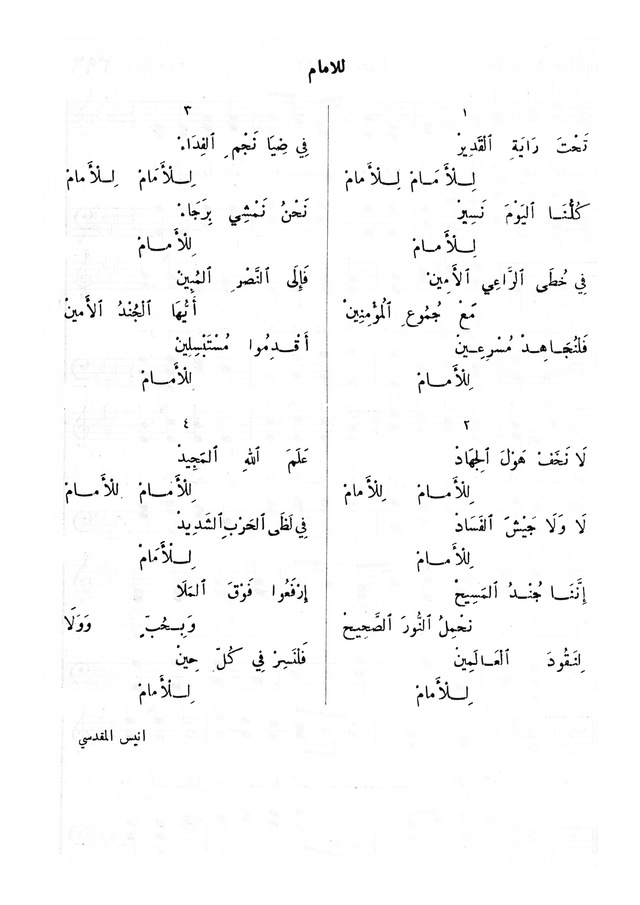 للامام
١
تَحْتَ رَايَةِ ٱلْقَدِيرْ
لِلْأَمَامْ لِلْأَمامْ
كُلُّنَا ٱليَوْمَ نَسِيرْ
لِلْأَمامْ
فِي خُطَى ٱلرَّاعِي ٱلأَمِينْ
مَعْ جُمُوعِ ٱلْمُؤْمِنِينْ
فَلْنُجَاهِدْ مُسْرِعِينْ
لِلْأَمامْ
٢
لَا نَخَفْ هَوْلَ ٱلجِهَادْ
لِلْأَمامْ لِلْأَمامْ
لَا وَلَا جَيْشَ ٱلفَسَادْ
لِلْأَمامْ
إِنَّنَا جُنْدُ ٱلمَسِيحْ
نَحْمِلُ ٱلنُّورَ ٱلصَّحِيحْ
لِنَقُودَ ٱلعَالَمِينْ
لِلْأَمامْ
٣
فِي ضِيَا نَجْمِ ٱلفِدَاءْ
لِلْأَمامْ لِلْأَمامْ
نَحْنُ نَمْشِي بِرَجَاءْ
لِلْأَمامْ
فَإِلَى ٱلنَّصْرِ ٱلمُبِينْ
أَيُّهَا ٱلجُنْدُ ٱلأَمينْ
أَقْدِمُوا مُسْتَبْسِلِينْ
لِلْأَمامْ
٤
عَلَمَ ٱللهِ ٱلمَجِيدْ
لِلْأَمامْ لِلْأَمامْ
فِي لَظَى ٱلحَرْبِ ٱلشَّدِيدْ
لِلْأَمَامْ
إِرْفَعُوا فَوْقَ ٱلمَلَا
وَبِحُبٍّ وَوَلَا
فَلْنَسِرْ فِي كُلِّ حِينْ
لِلْأَمامْ
انيس المقدسي